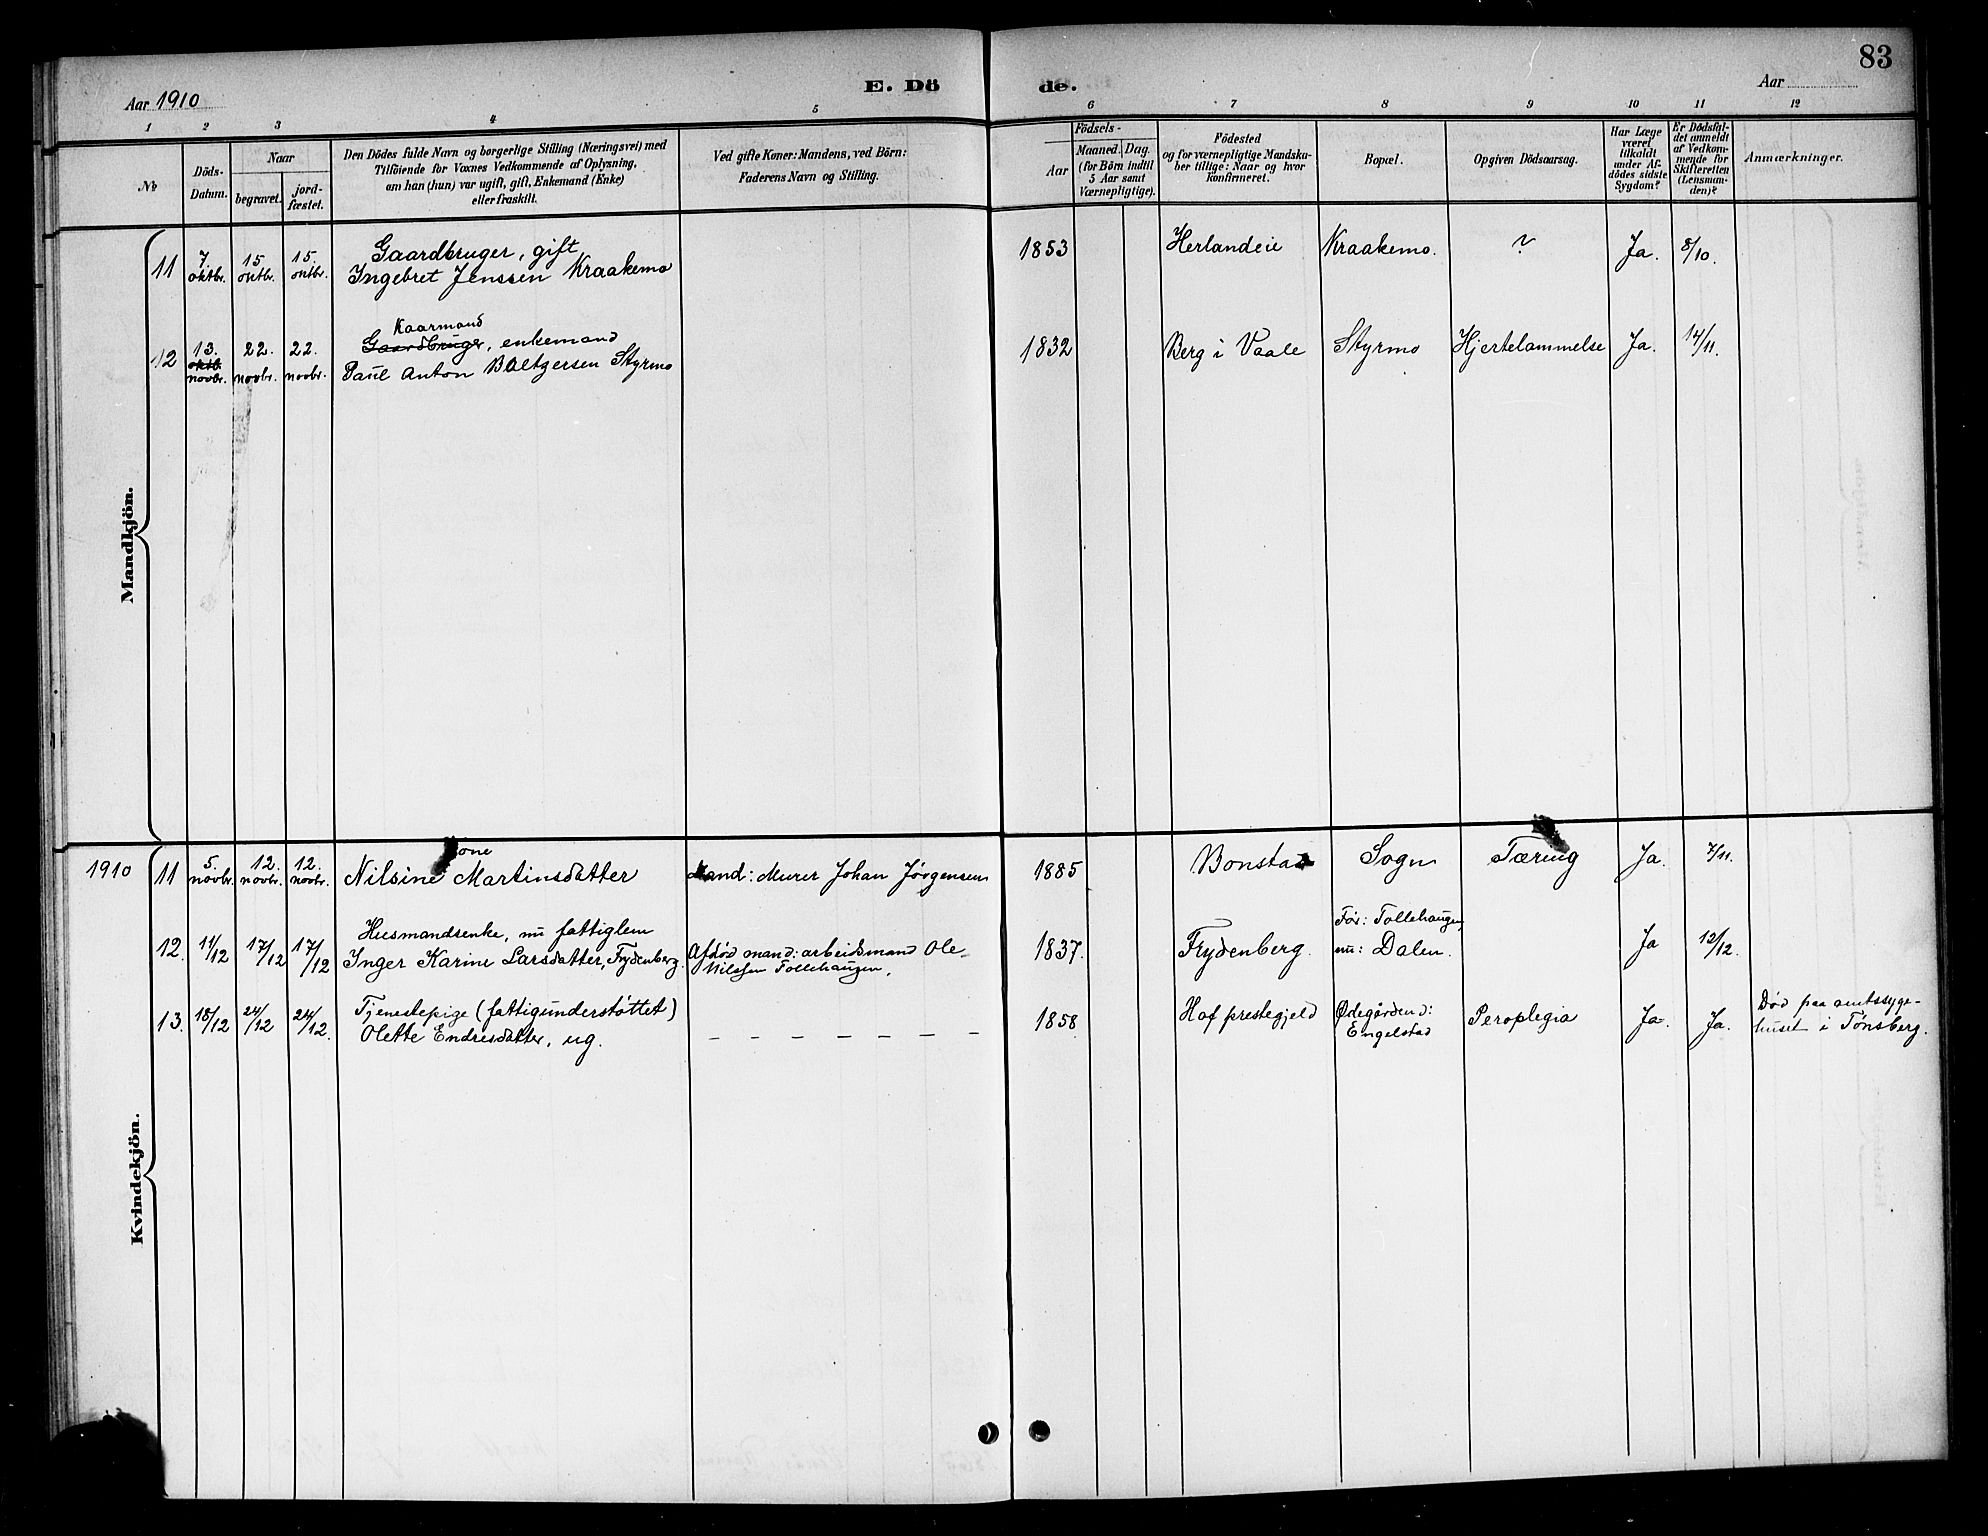 83
Aar 1910
E. Dö
de.
Aar
1 2 3 4 5 6 7 8 9 10 11 12
No
Döds-
Datum.
Naar
begravet.
jord-
fæstet.
Den Dödes fulde Navn og borgerlige Stilling (Næringsvei) med
Tilföiende for Voxnes Vedkommende af Oplysning,
om han (hun) var ugift, gift, Enkemand (Enke)
eller fraskilt.
Ved gifte Koner: Mandens, ved Börn:
Faderens Navn og Stilling.
Födsels-
Aar
Maaned. Dag.
(for Börn indtil
5 Aar samt
Værnepligtige).
Födested
og for værnepligtige Mandska-
ber tillige: Naar og hvor
konfirmeret.
Bopæl.
Opgiven Dödsaarsag.
Har Læge
været
tilkaldt
under Af-
dödes sidste
Sygdom?
Er Dödsfal-
det anmeldt
af Vedkom-
mende for
Skifteretten
(Lensman-
den)?
Anmærkninger.
Mandkjön.
11
7.
oktbr.
15.
oktbr.
15.
oktbr.
Gaardbruger, gift
Ingebret Jenssen Kraakemo
1853
Herlandeie
Kraakemo.
?
Ja.
8/10.
12
13.
oktb.
novbr.
22.
novbr.
22.
novbr.
Kaarmand
Gaardbruger, enkemand
Paul Anton Baltzersen Styrmo
1832
Berg i Vaale
Styrmo
Hjertelammelse
Ja.
14/11.
Kvindekjön.
1910
11
5.
novbr.
12.
novbr.
12.
novbr.
Kone
Nilsine Martinsdatter
Mand: Murer Johan Jørgensen
1885
Bonstad
Sogn
Tæring
Ja.
7/11.
12.
11/12
17/12
17/12
Husmandsenke, nu fattiglem
Inger Karine Larsdatter, Frydenberg.
Afdød mand: arbeidsmand Ole
Nilssen Tollehaugen.
1837.
Frydenberg.
Før: Tollehaugen,
nu: Dalen.
Ja
12/12.
13.
18/12
24/12
24/12.
Tjenestepige (fattigunderstøttet)
Olette Endresdatter, ug.
– – – – – – –
1858
Hof prestegjeld
Ødegården u:
Engelstad
Peroplegia
Ja.
Ja.
Død paa amtssyge-
huset i Tønsberg.